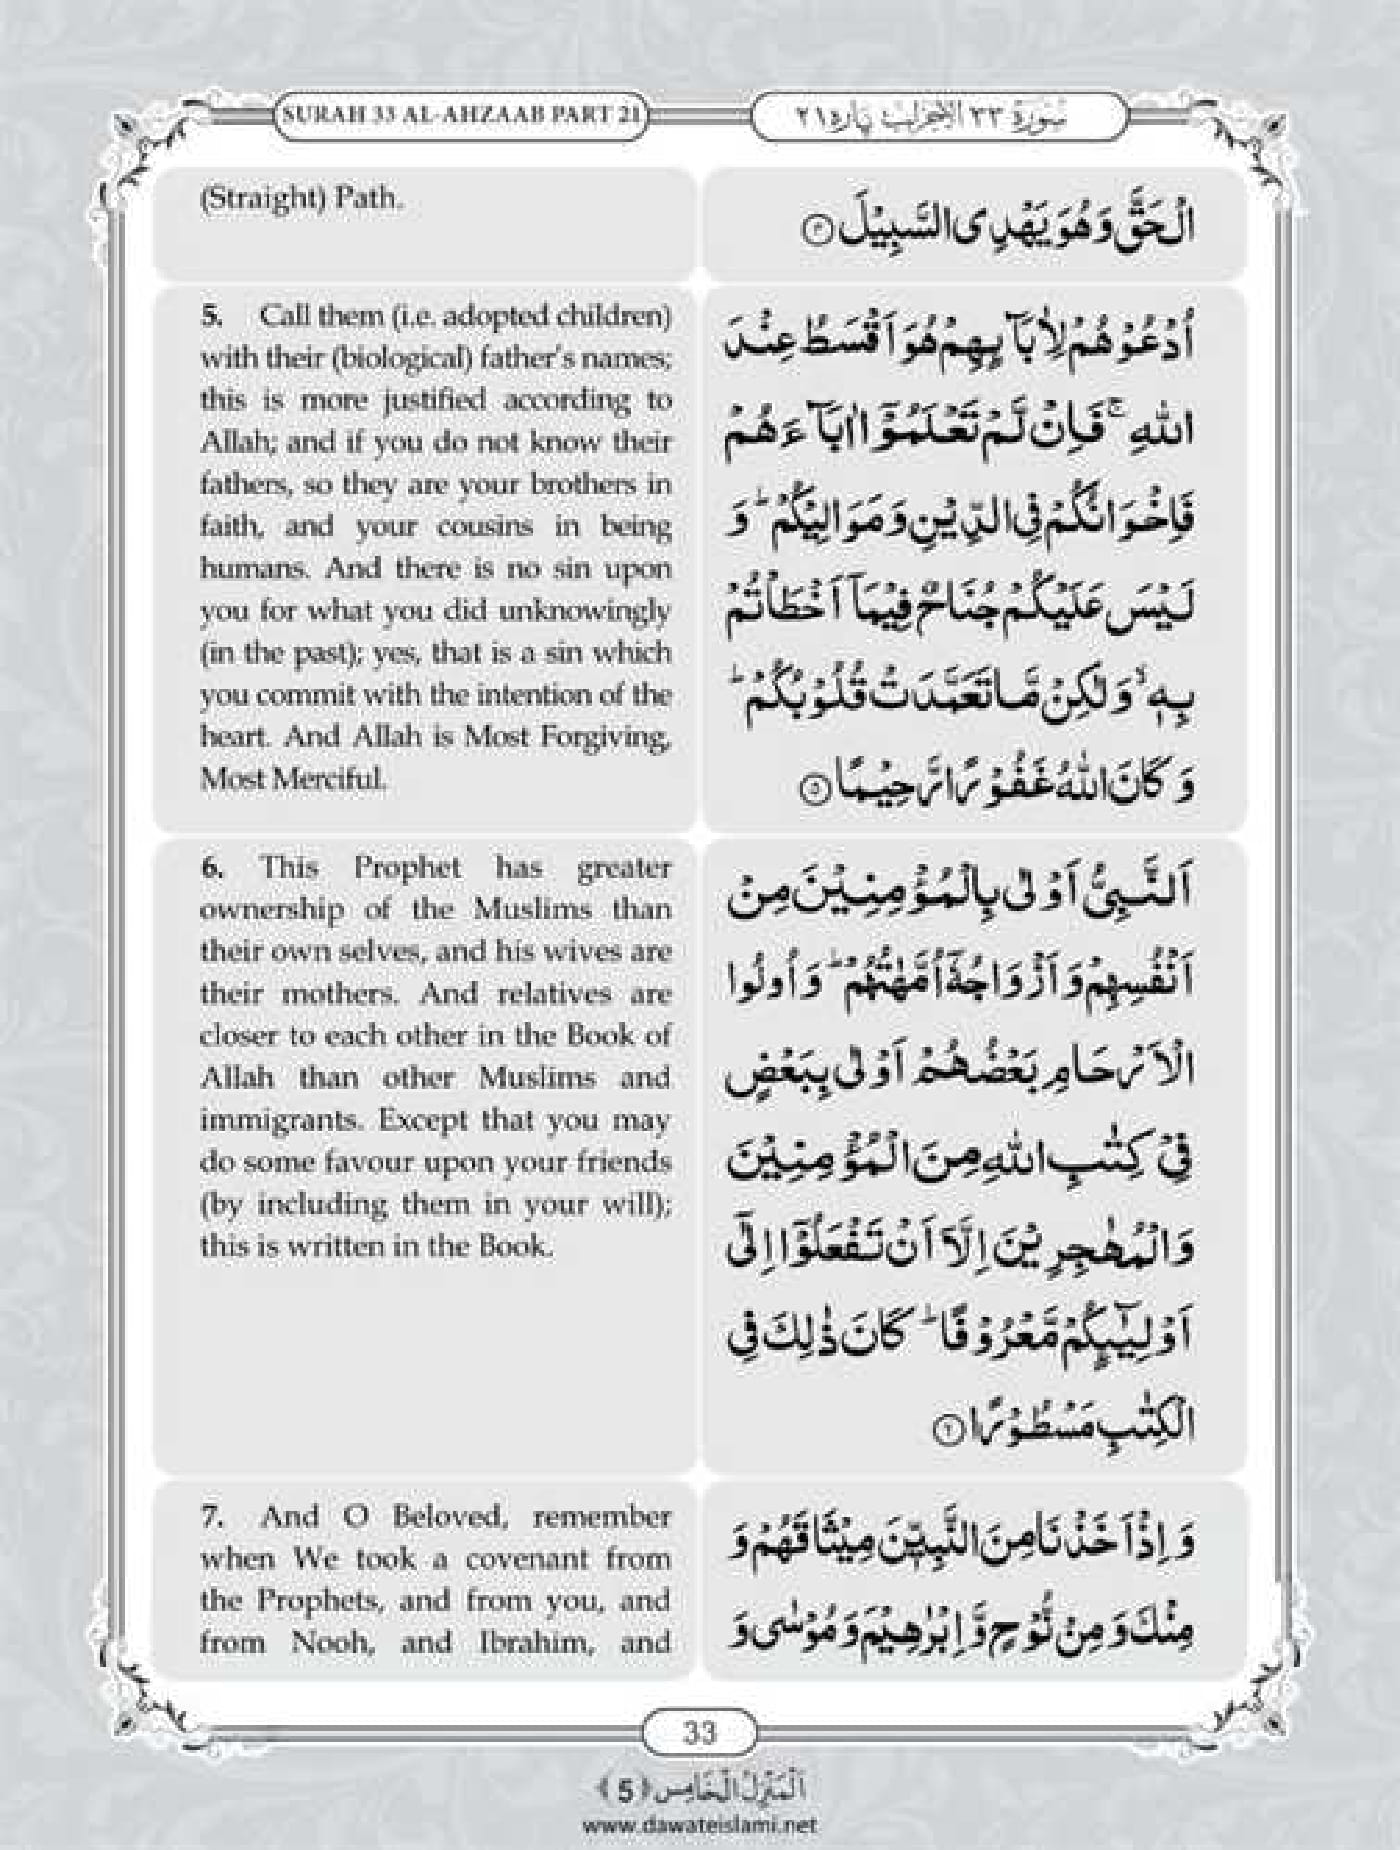 SURAH 33 AL-AHZAAB PART 21
سُورة ٣٣ الاحزاب پاره ٢١
(Straight) Path.
الْحَقَّ وَهُوَ يَهْدِی السَّبِیْلَ ﴿۴﴾
5. Call them (i.e. adopted children)
with their (biological) father's names;
this is more justified according to
Allah; and if you do not know their
fathers, so they are your brothers in
faith, and your cousins in being
humans. And there is no sin upon
you for what you did unknowingly
(in the past); yes, that is a sin which
you commit with the intention of the
heart. And Allah is Most Forgiving,
Most Merciful.
اُدْعُوْهُمْ لِاٰبَآىِٕهِمْ هُوَ اَقْسَطُ عِنْدَ
اللّٰهِ ۚ فَاِنْ لَّمْ تَعْلَمُوْۤا اٰبَآءَهُمْ
فَاِخْوَانُكُمْ فِی الدِّیْنِ وَمَوَالِیْكُمْ ؕ وَ
لَیْسَ عَلَیْكُمْ جُنَاحٌ فِیْمَاۤ اَخْطَاْتُمْ
بِهٖ ۙ وَلٰكِنْ مَّا تَعَمَّدَتْ قُلُوْبُكُمْ ؕ
وَ كَانَ اللّٰهُ غَفُوْرًا رَّحِیْمًا ﴿۵﴾
6. This Prophet has greater
ownership of the Muslims than
their own selves, and his wives are
their mothers. And relatives are
closer to each other in the Book of
Allah than other Muslims and
immigrants. Except that you may
do some favour upon your friends
(by including them in your will);
this is written in the Book.
اَلنَّبِیُّ اَوْلٰى بِالْمُؤْمِنِیْنَ مِنْ
اَنْفُسِهِمْ وَ اَزْوَاجُهٗۤ اُمَّهٰتُهُمْ ؕ وَ اُولُوا
الْاَرْحَامِ بَعْضُهُمْ اَوْلٰى بِبَعْضٍ
فِیْ كِتٰبِ اللّٰهِ مِنَ الْمُؤْمِنِیْنَ
وَالْمُهٰجِرِیْنَ اِلَّاۤ اَنْ تَفْعَلُوْۤا اِلٰۤى
اَوْلِیٰٓىِٕكُمْ مَّعْرُوْفًا ؕ كَانَ ذٰلِكَ فِی
الْكِتٰبِ مَسْطُوْرًا ﴿۶﴾
7. And O Beloved, remember
when We took a covenant from
the Prophets, and from you, and
from Nooh, and Ibrahim, and
وَ اِذْ اَخَذْنَا مِنَ النَّبِیّٖنَ مِیْثَاقَهُمْ وَ
مِنْكَ وَ مِنْ نُّوْحٍ وَّ اِبْرٰهِیْمَ وَ مُوْسٰى وَ
33
اَلْمَنْزِلُ الْخَامِس ﴿5﴾
www.dawateislami.net